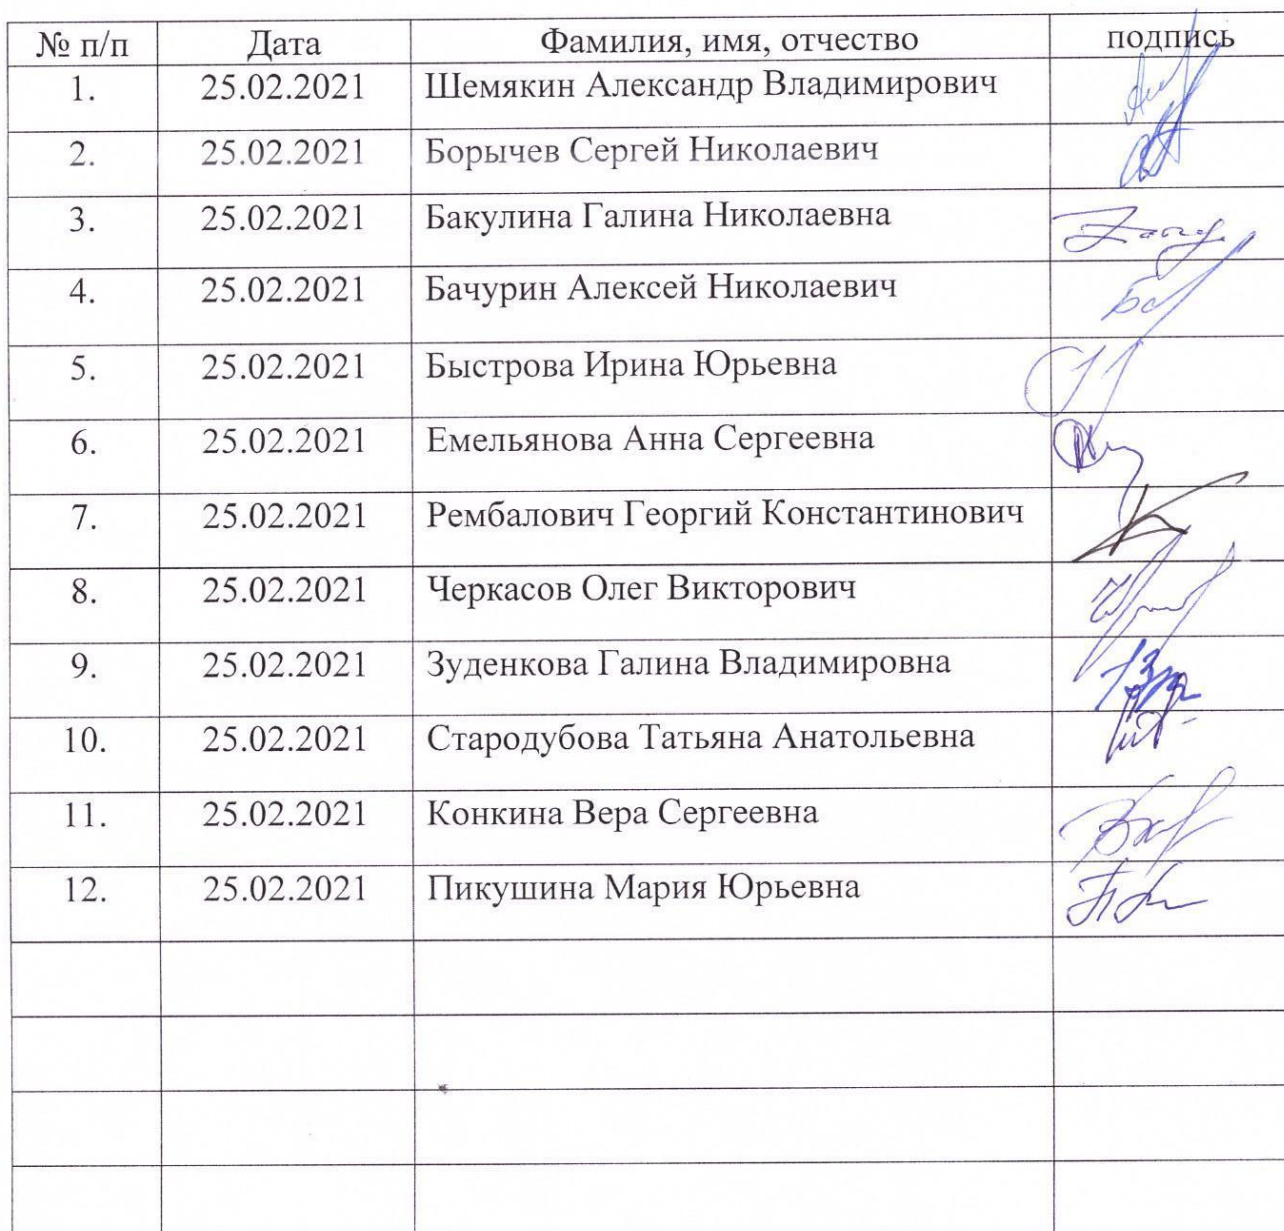 № п/п Дата Фамилия, имя, отчество подпись
1. 25.02.2021 Шемякин Александр Владимирович
2. 25.02.2021 Борычев Сергей Николаевич
3. 25.02.2021 Бакулина Галина Николаевна
4. 25.02.2021 Бачурин Алексей Николаевич
5. 25.02.2021 Быстрова Ирина Юрьевна
6. 25.02.2021 Емельянова Анна Сергеевна
7. 25.02.2021 Рембалович Георгий Константинович
8. 25.02.2021 Черкасов Олег Викторович
9. 25.02.2021 Зуденкова Галина Владимировна
10. 25.02.2021 Стародубова Татьяна Анатольевна
11. 25.02.2021 Конкина Вера Сергеевна
12. 25.02.2021 Пикушина Мария Юрьевна